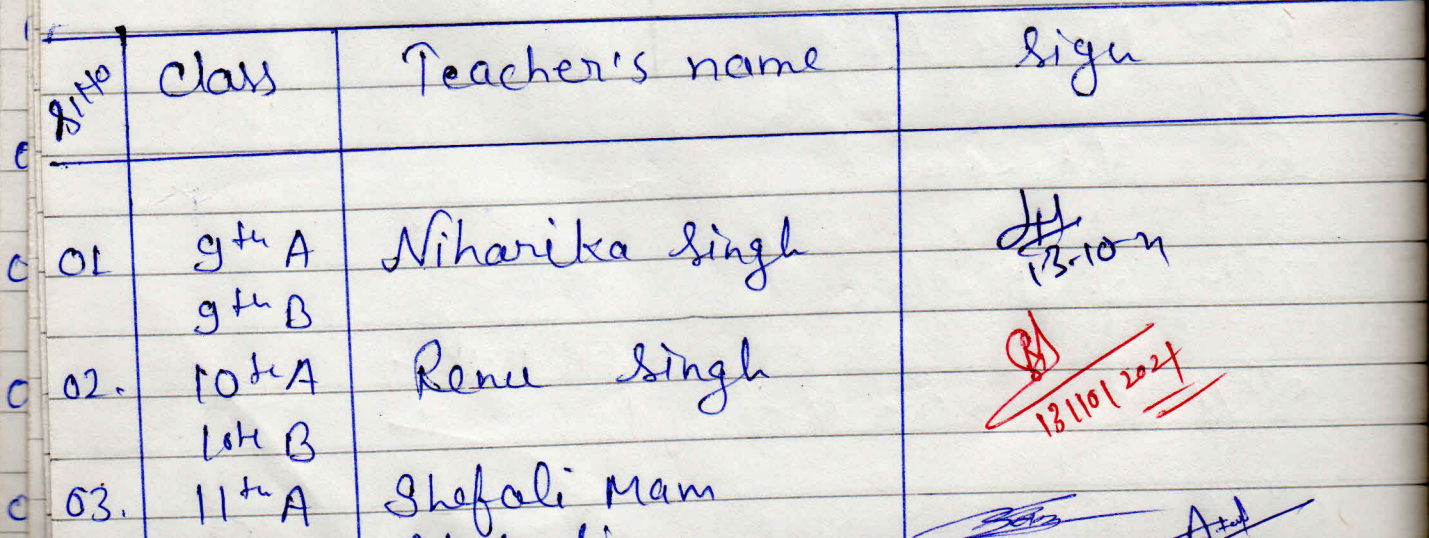 Sl No Class Teacher's name Sign
01 9th A Niharika Singh
13-10-21
9th B
02. 10th A Renu Singh
13/10/2021
10th B
03. 11th A Shefali Mam